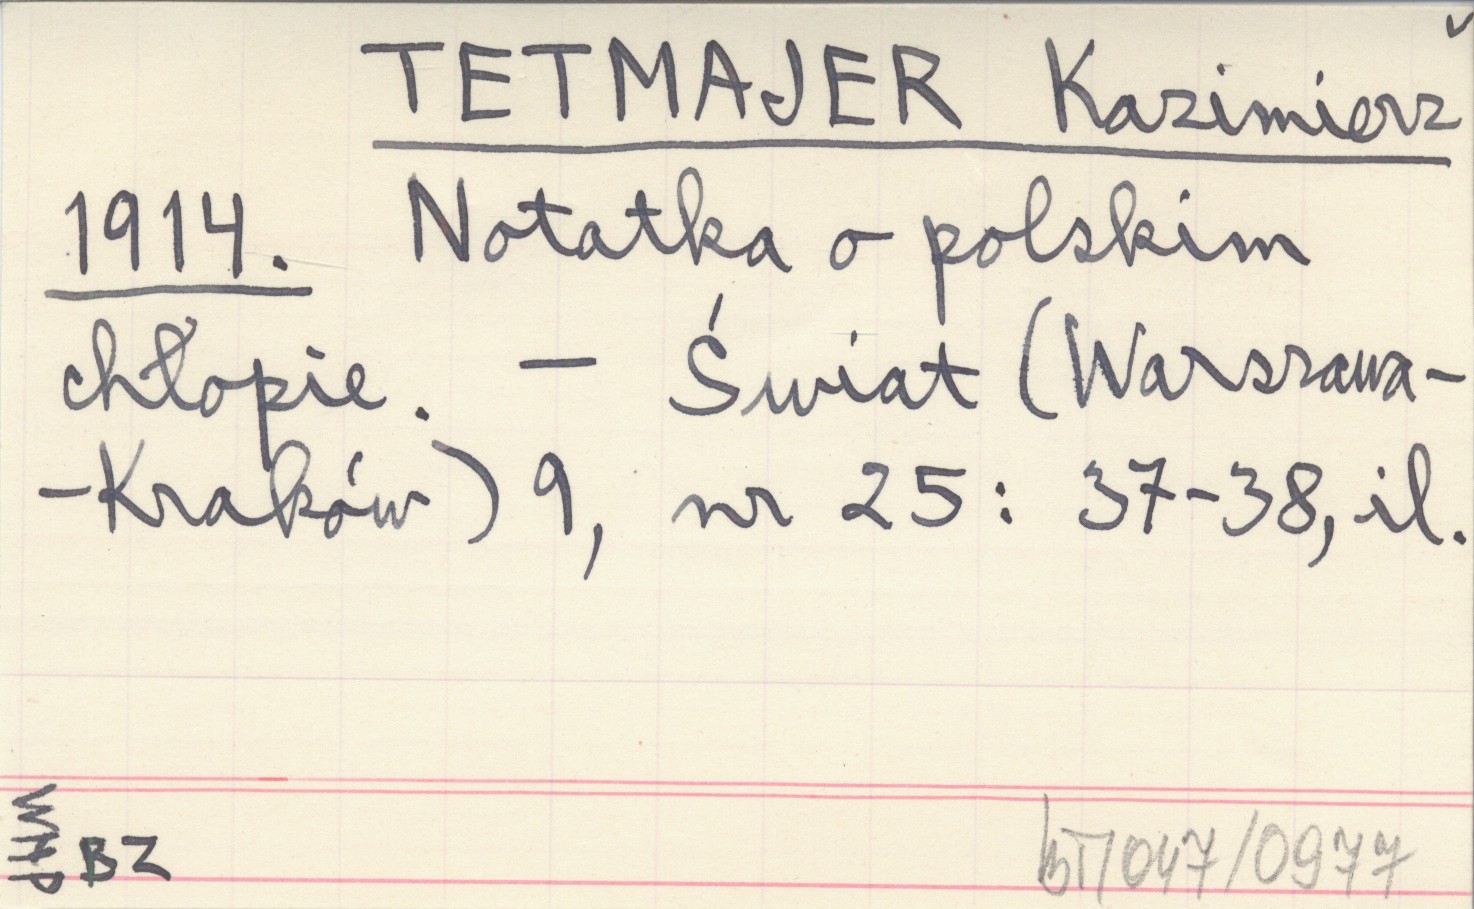 TETMAJER Kazimierz
1914. Notatka o polskim
chłopie. - Świat (Warszawa-
-Kraków) 9, nr 25: 37-38, il.
BZ
/047/0977